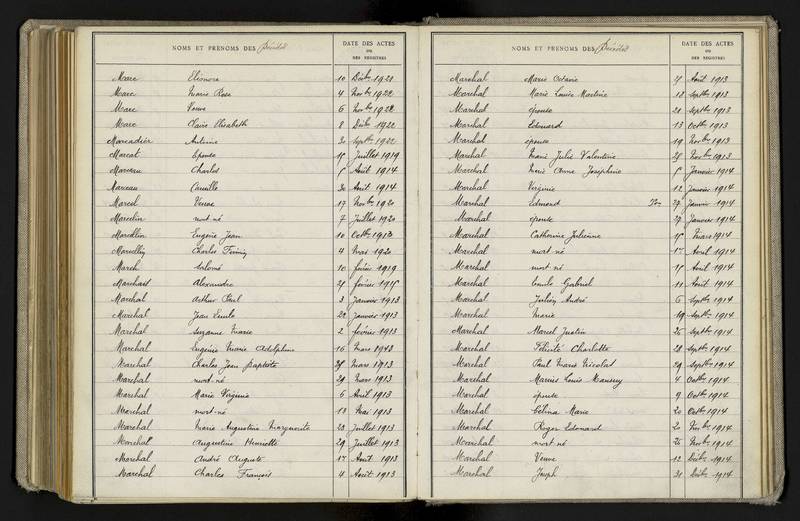 NOMS ET PRÉNOMS DES Décédés
DATE DES ACTES
OU
DES REGISTRES
Marc Eléonore 10 Décbre 1921
Marc Marie Rose 4 Novbre 1922
Marc Veuve 6 Novbre 1922
Marc Claire Elisabeth 8 Décbre 1922
Marcadier Antoine 30 Septbre 1922
Marcat Epouse 15 Juillet 1919
Marceau Charles 5 Août 1914
Marceau Camille 30 Août 1914
Marcel Veuve 17 Novbre 1920
Marcelin mort-né 7 Juillet 1920
Marcellin Eugène Jean 10 Octbre 1913
Marcellin Charles 4 Mai 1920
March Salomé 10 février 1919
Marchard Alexandre 21 février 1915
Marchal Arthur Paul 3 Janvier 1913
Marchal Jean Emile 22 Janvier 1913
Marchal Suzanne Marie 2 février 1913
Marchal Eugénie Marie Adolphine 16 Mars 1913
Marchal Charles Jean Baptiste 25 Mars 1913
Marchal mort-né 29 Mars 1913
Marchal Marie Virginie 6 Avril 1913
Marchal mort-né 13 Mai 1913
Marchal Marie Augustine Marguerite 23 Juillet 1913
Marchal Augustine Henriette 29 Juillet 1913
Marchal André Auguste 1er Août 1913
Marchal Charles François 4 Août 1913
NOMS ET PRÉNOMS DES Décédés
DATE DES ACTES
OU
DES REGISTRES
Marchal Marie Octavie Août 1913
Marchal Marie Louise 12 Septbre 1913
Marchal épouse 21 Septbre 1913
Marchal Edouard 13 Octbre 1913
Marchal épouse 19 Novbre 1913
Marchal Marie Julie Valentine 25 Novbre 1913
Marchal Marie Anne Joséphine 5 Janvier 1914
Marchal Virginie 12 Janvier 1914
Marchal Edmond 27 Janvier 1914
Marchal épouse 29 Janvier 1914
Marchal Catherine Julienne 15 Mars 1914
Marchal mort-né Avril 1914
Marchal mort-né 15 Août 1914
Marchal Emile Gabriel 11 Août 1914
Marchal Julien André 6 Septbre 1914
Marchal Marie 19 Septbre 1914
Marchal Marcel Justin 26 Septbre 1914
Marchal Félicité Charlotte 28 Septbre 1914
Marchal Paul Marie Nicolas 29 Septbre 1914
Marchal Marius Louis 4 Octbre 1914
Marchal épouse 9 Octbre 1914
Marchal Célina Marie 20 Octbre 1914
Marchal Roger Edouard 20 Novbre 1914
Marchal mort-né 26 Novbre 1914
Marchal Veuve 12 Décbre 1914
Marchal Joseph 31 Décbre 1914